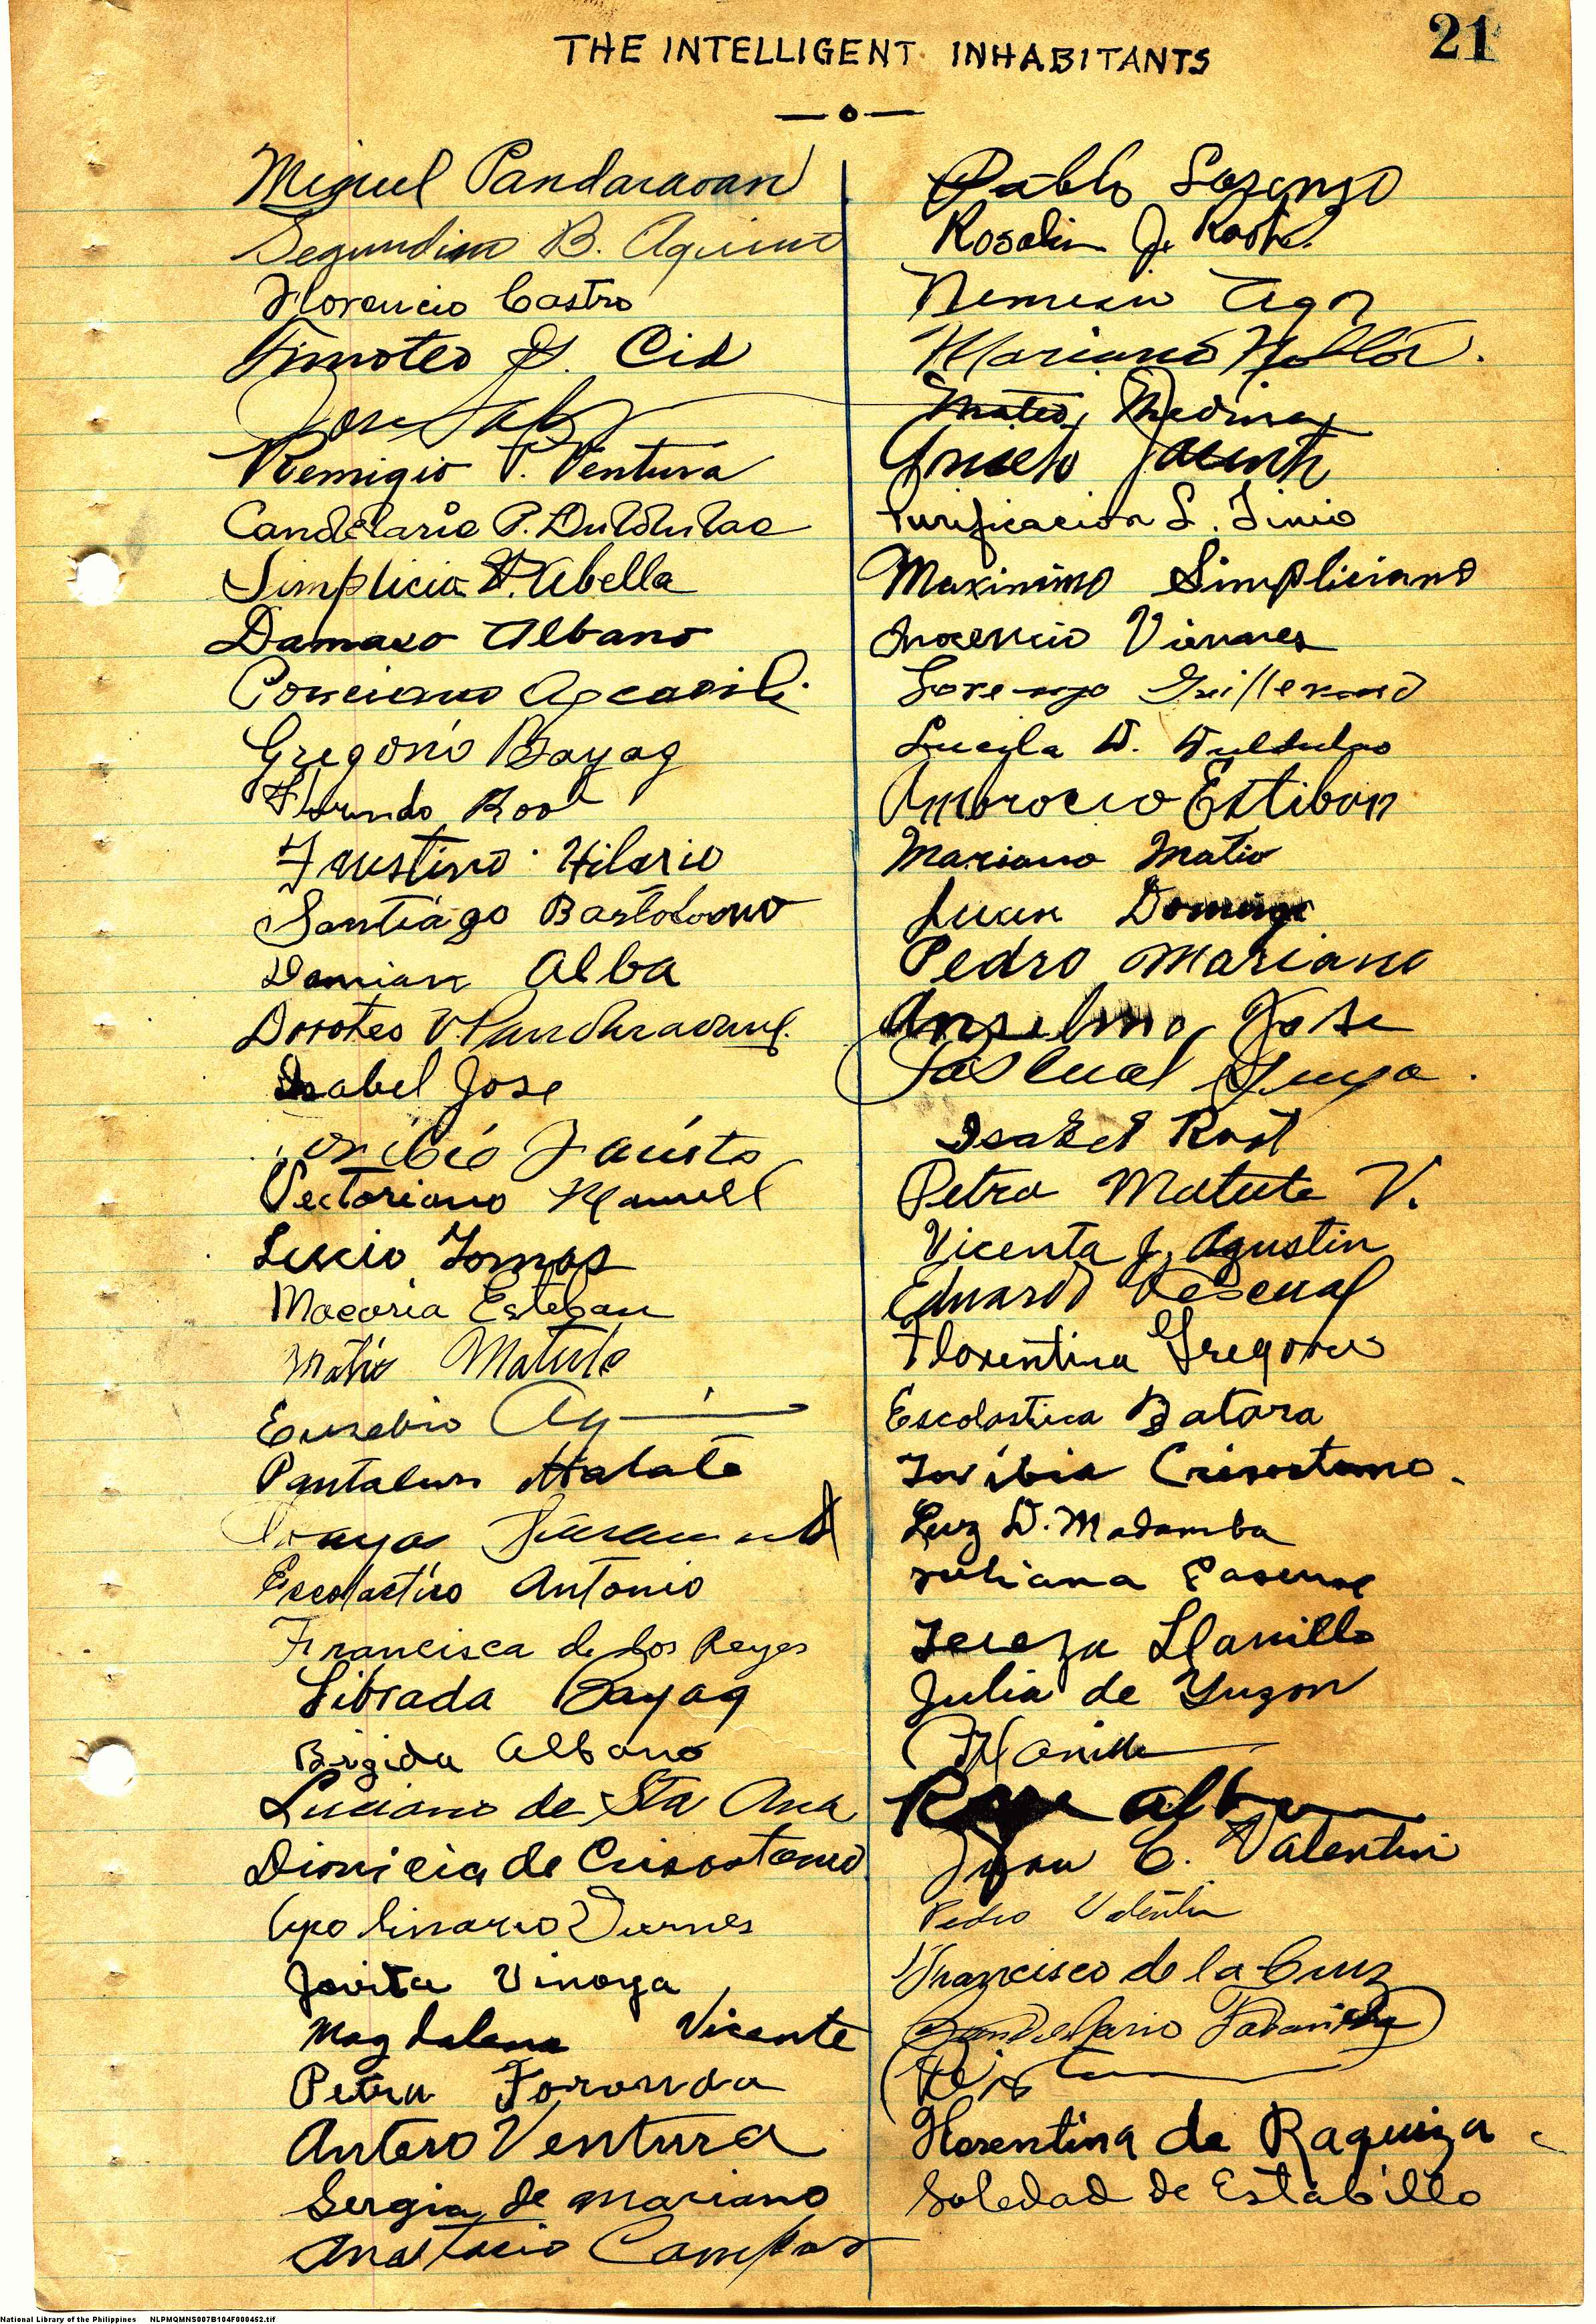 21
THE INTELLIGENT INHABITANTS
Miguel Pandaraoan
Segundino B. Aquino
Florencio Castro
Timoteo S. Cid
Jose
Remigio P. Ventura
Candelario P. Duldulao
Simplicio F. Abella
Damaso Albano
Ponciano Agcaoili
Gregorio Bayag
Florindo
Faustino Hilario
Santiago Bartolome
Damian Alba
Doroteo V. Pandaraoan
Isabel Jose
Toribio Fausto
Victoriano Manuel
Lucio Tomas
Macaria Esteban
Matio Matute
Eusebio
Pantaleon Malate
Escolastico Antonio
Francisca de los Reyes
Librada Bayag
Brigida Albano
Luciano de Sta Ana
Dionicia de Crisostomo
Apolinario
Jovita Vinoya
Magdalena Vicente
Petra Foronda
Antero Ventura
Sergia de Mariano
Anastacio Campos
Pablo Lorenzo
Rosalin J.
Nemesio
Mariano
Mateo Medina
Jacinto
Purificacion L. Tinio
Maximino Simpliciano
Inocencio Viernes
Lorenzo Guillermo
Lucila D. Duldulao
Ambrocio Estiban
Mariano Matio
Juan Domingo
Pedro Mariano
Anselmo Jose
Pascual
Isabel Rost
Petra Matute V.
Vicenta J. Agustin
Eduardo Pascual
Florentina Gregorio
Escolastica Batara
Toribia Crisostomo.
Luz D. Madamba
Juliana Pascual
Tereza Llanillo
Julia de Yuzon
Juan C. Valentin
Pedro Valentin
Francisco de la Cruz
Candelario
Florentina de Raquiza
Soledad de Estabillo
National Library of the Philippines NLPMQMNS007B104F000452.tif